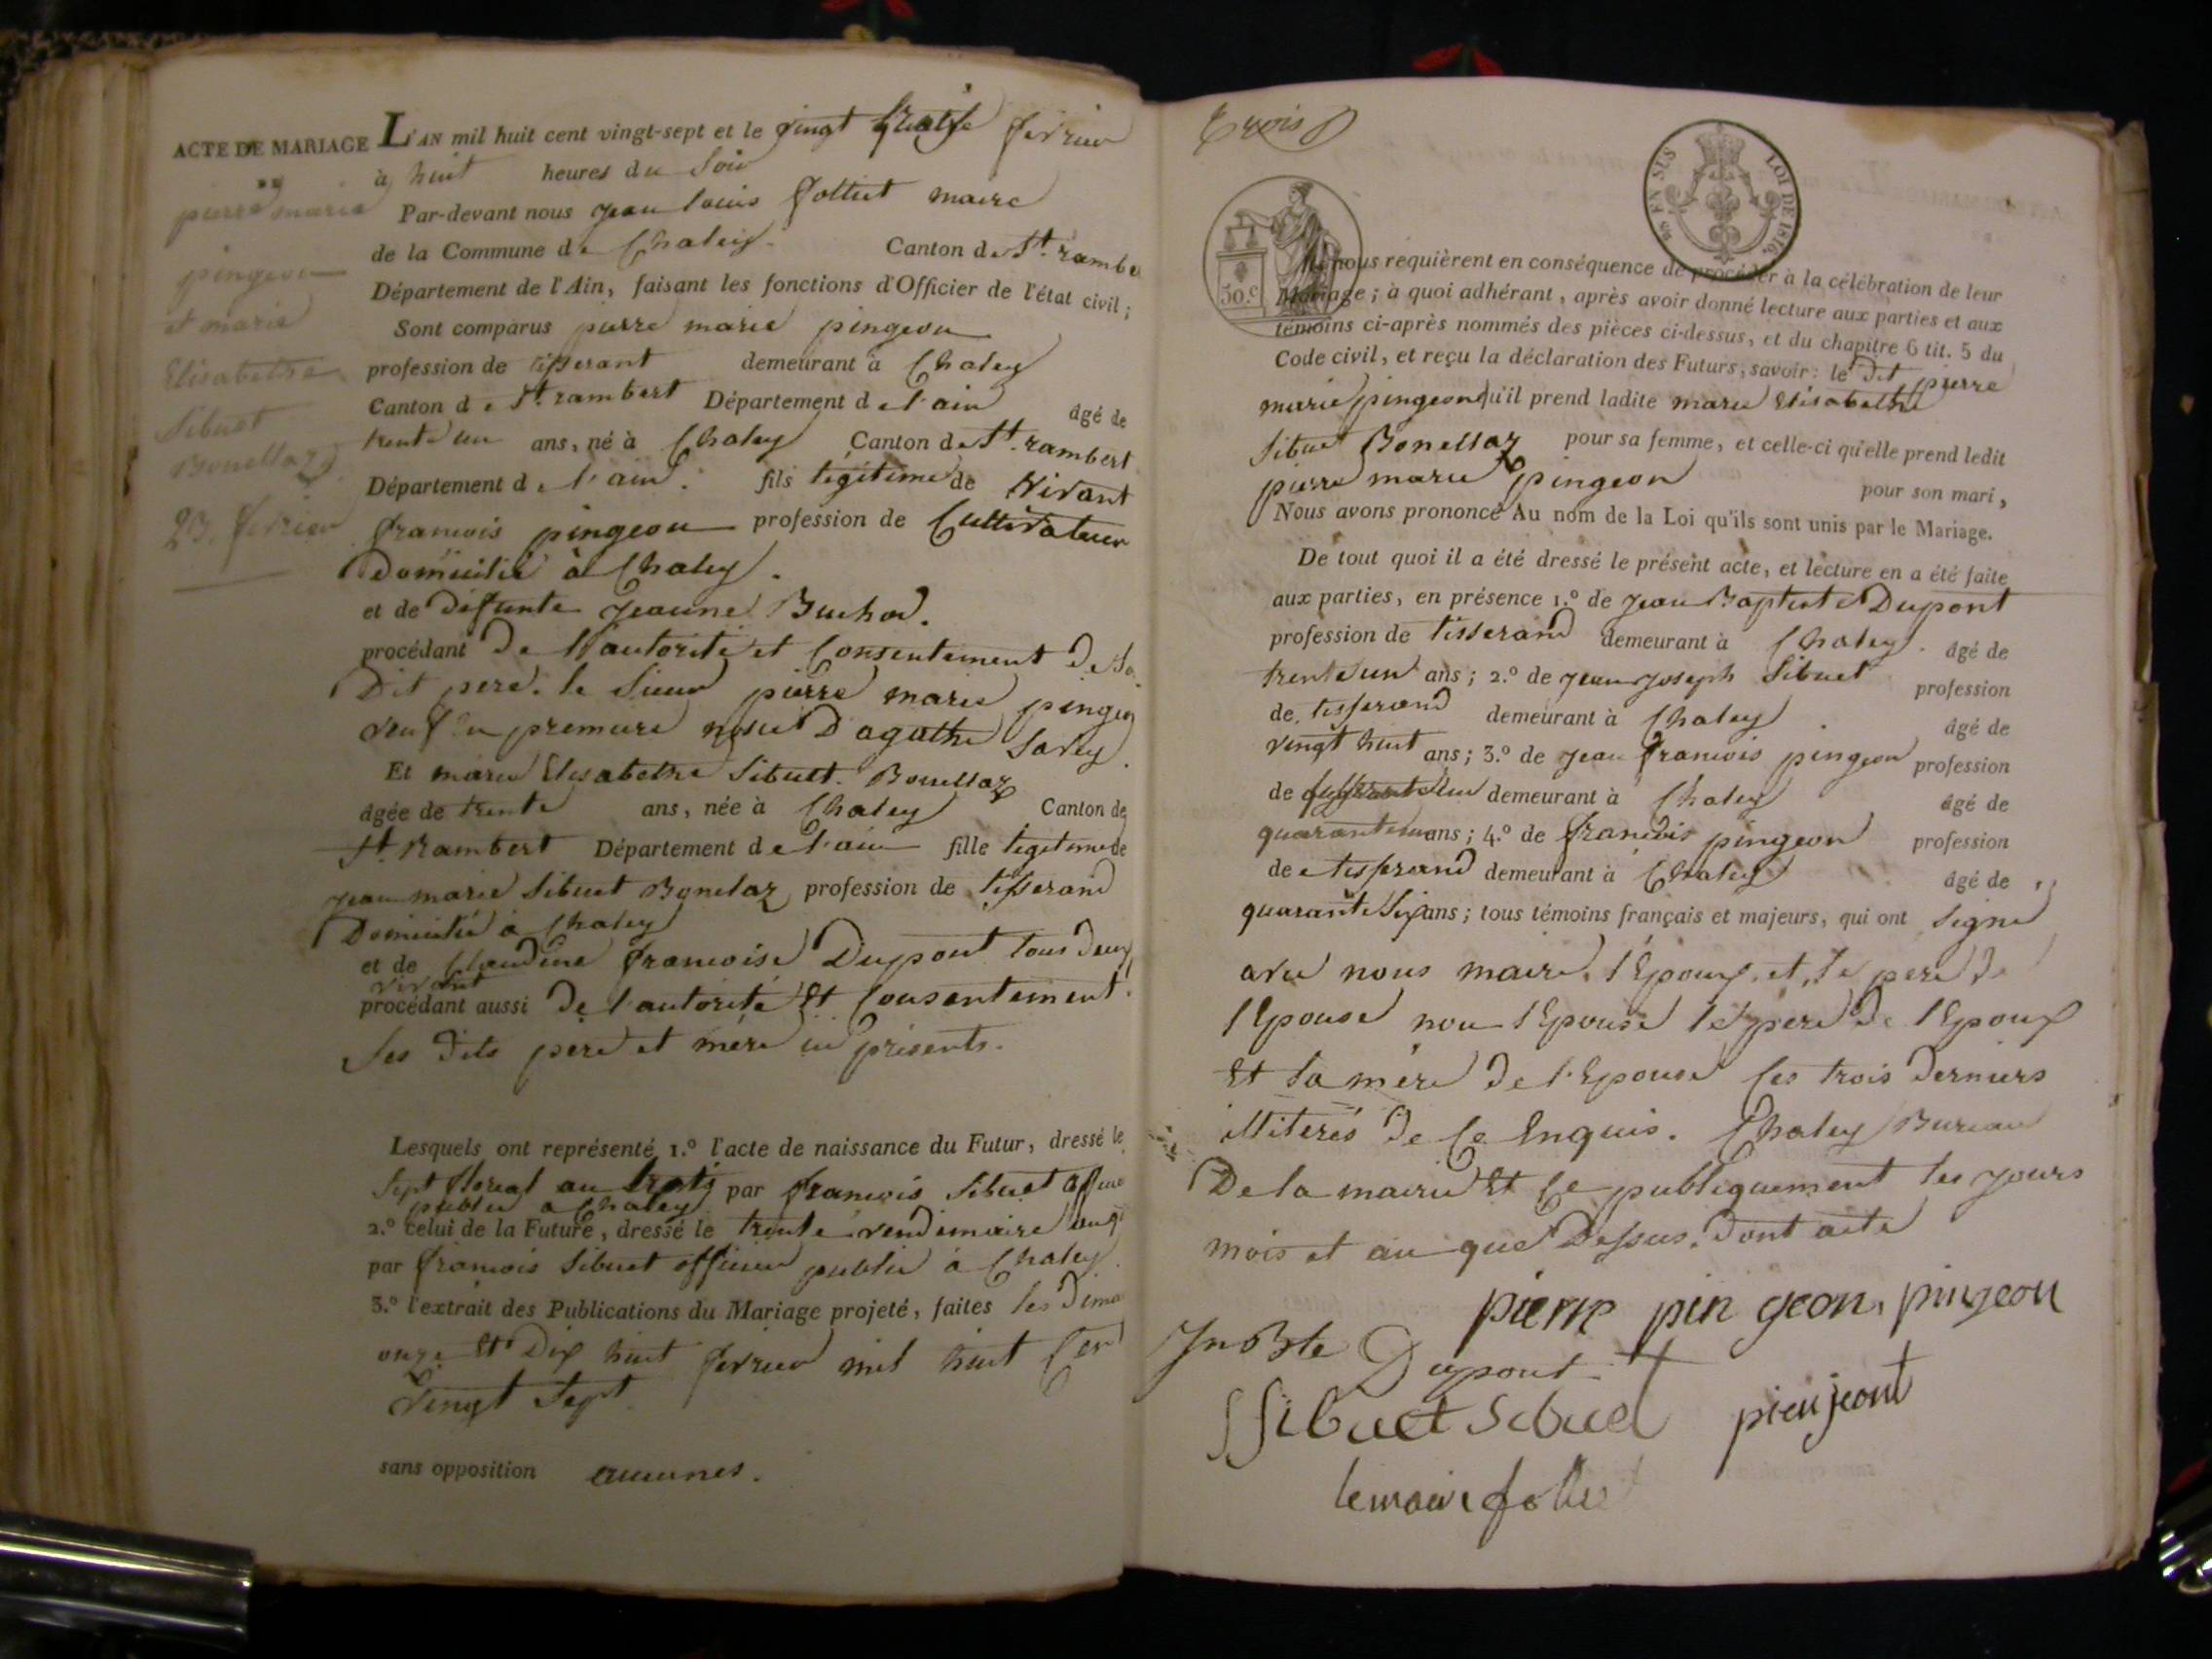 ACTE DE MARIAGE
pierre marie
pingeon
et marie
Elisabethe
Sibuet
Bonellaz
23. fevrier
L'AN mil huit cent vingt-sept et le vingt trois fevrier
à huit heures du Soir
Par-devant nous jean louis folliet maire
de la Commune de Chaley. Canton de St. rambe
Département de l'Ain, faisant les fonctions d'Officier de l'état civil ;
Sont comparus pierre marie pingeon
profession de tisserant demeurant à Chaley
Canton de St. rambert Département de l'ain âgé de
trente un ans, né à Chaley Canton de St. rambert
Département de l'ain. fils legitime de vivant
francois pingeon profession de Cultivateur
Domicilié à Chaley.
et de Défunte jeanne
procédant De l'autorité et Consentement De So
Dit pere. le Sieur pierre marie pingeo
veuf en premiere D'agathe Savey.
Et marie Elisabethe Sibuet. Bonellaz
âgée de trente ans, née à Chaley Canton de
St. Rambert Département de l'ain fille legitime de
jean marie Sibuet Bonelaz profession de tisserand
Domicilié à Chaley
et de Claudine francoise Dupont tous Deux
vivant
procédant aussi De l'autorité Et Consentement
Ses Dits pere et mere ici présents.
Lesquels ont représenté 1.° l'acte de naissance du Futur, dressé le
Sept floreal an trois par francois Sibuet offici
publie a Chaley
2.° celui de la Future, dressé le trente vendémiaire an
par francois Sibuet officier publie à Chaley
3.° l'extrait des Publications du Mariage projeté, faites les Dima
onze Et Dix huit fevrier mil huit Cent
vingt Sept
sans opposition aucunes.
trois
50.c
EN SUS LOI DE 1816.
nous requièrent en conséquence de procéder à la célébration de leur
Mariage ; à quoi adhérant, après avoir donné lecture aux parties et aux
témoins ci-après nommés des pièces ci-dessus, et du chapitre 6 tit. 5 du
Code civil, et reçu la déclaration des Futurs, savoir : le Dit pierre
marie pingeon qu'il prend ladite marie Elisabethe
Sibuet Bonellaz pour sa femme, et celle-ci qu'elle prend ledit
pierre marie pingeon pour son mari,
Nous avons prononcé Au nom de la Loi qu'ils sont unis par le Mariage.
De tout quoi il a été dressé le présent acte, et lecture en a été faite
aux parties, en présence 1.° de jean Baptiste Dupont
profession de tisserand demeurant à Chaley. âgé de
trente un ans ; 2.° de jean joseph Sibuet profession
de tisserand demeurant à Chaley. âgé de
vingt huit ans ; 3.° de jean francois pingeon profession
de demeurant à Chaley âgé de
quarante ans ; 4.° de francois pingeon profession
de tisserand demeurant à Chaley âgé de
quarante Six ans ; tous témoins français et majeurs, qui ont Signé
avec nous maire. l'Epoux. et, le pere De
l'Epouse non l'Epouse le pere De l'Epoux
Et la mère De l'Epouse Ces trois Derniers
illiterés De Ce Enquis. Chaley Bureau
De la mairie Et Ce publiquement les jours
mois et an que Dessus. Dont acte
pierre pin geon. pingeon
Jn Bte Dupont
Sibuet Sibuet pieujeont
le maire folliet